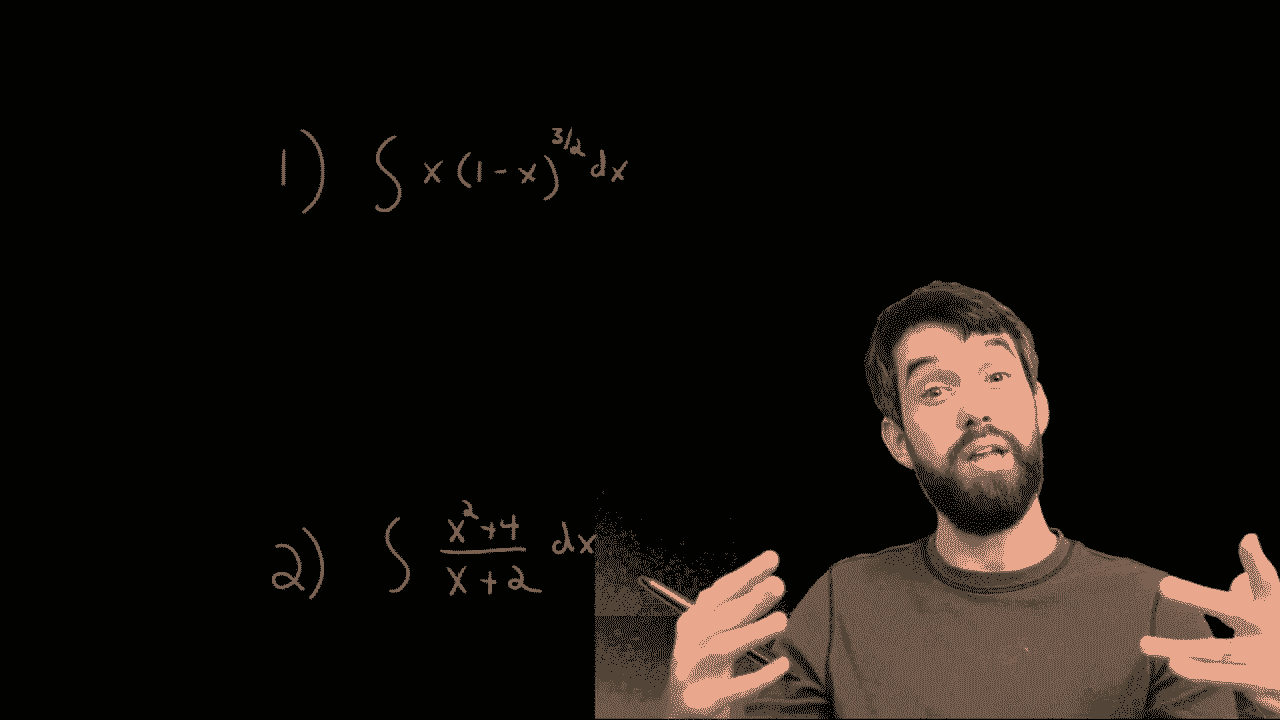 1) ∫ x(1-x)^{3/2} dx
2) ∫ \frac{x^2+4}{x+2} dx